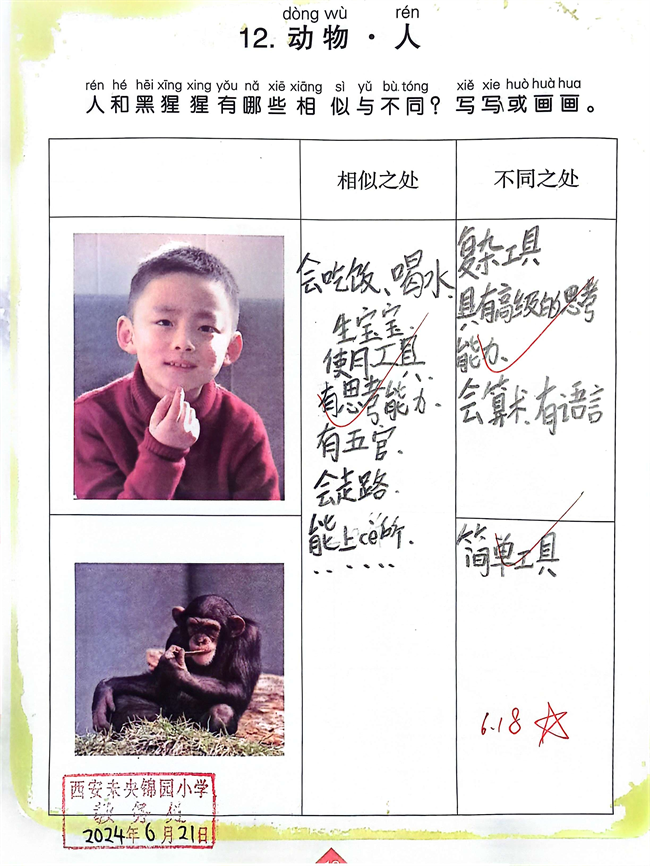 dòng wù rén
12. 动物·人
rén hé hēi xīng xing yǒu nǎ xiē xiāng sì yǔ bù tóng xiě xie huò huà hua
人和黑猩猩有哪些相似与不同？写写或画画。
相似之处 不同之处
会吃饭、喝水.
生宝宝.
使用工具
有思考能力.
有五官.
会走路.
能上cè所.
......
复杂工具
具有高级的思考
能力.
会算术.有语言
简单工具
6.18
西安未央锦园小学
2024年6月21日